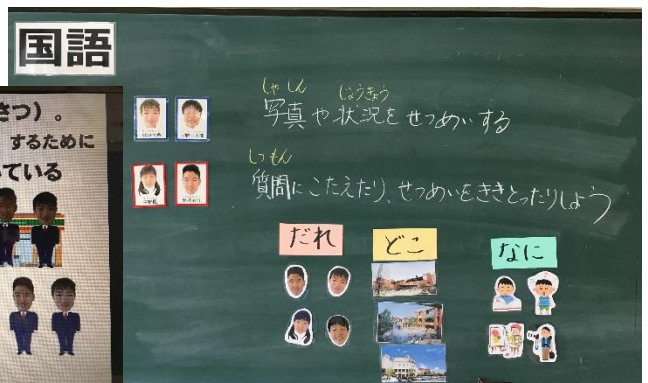 国語
さつ）。
するために
ている
しゃしん じょうきょう
写真や状況をせつめいする
しつもん
質問にこたえたり、せつめいをききとったりしよう
だれ
どこ
なに